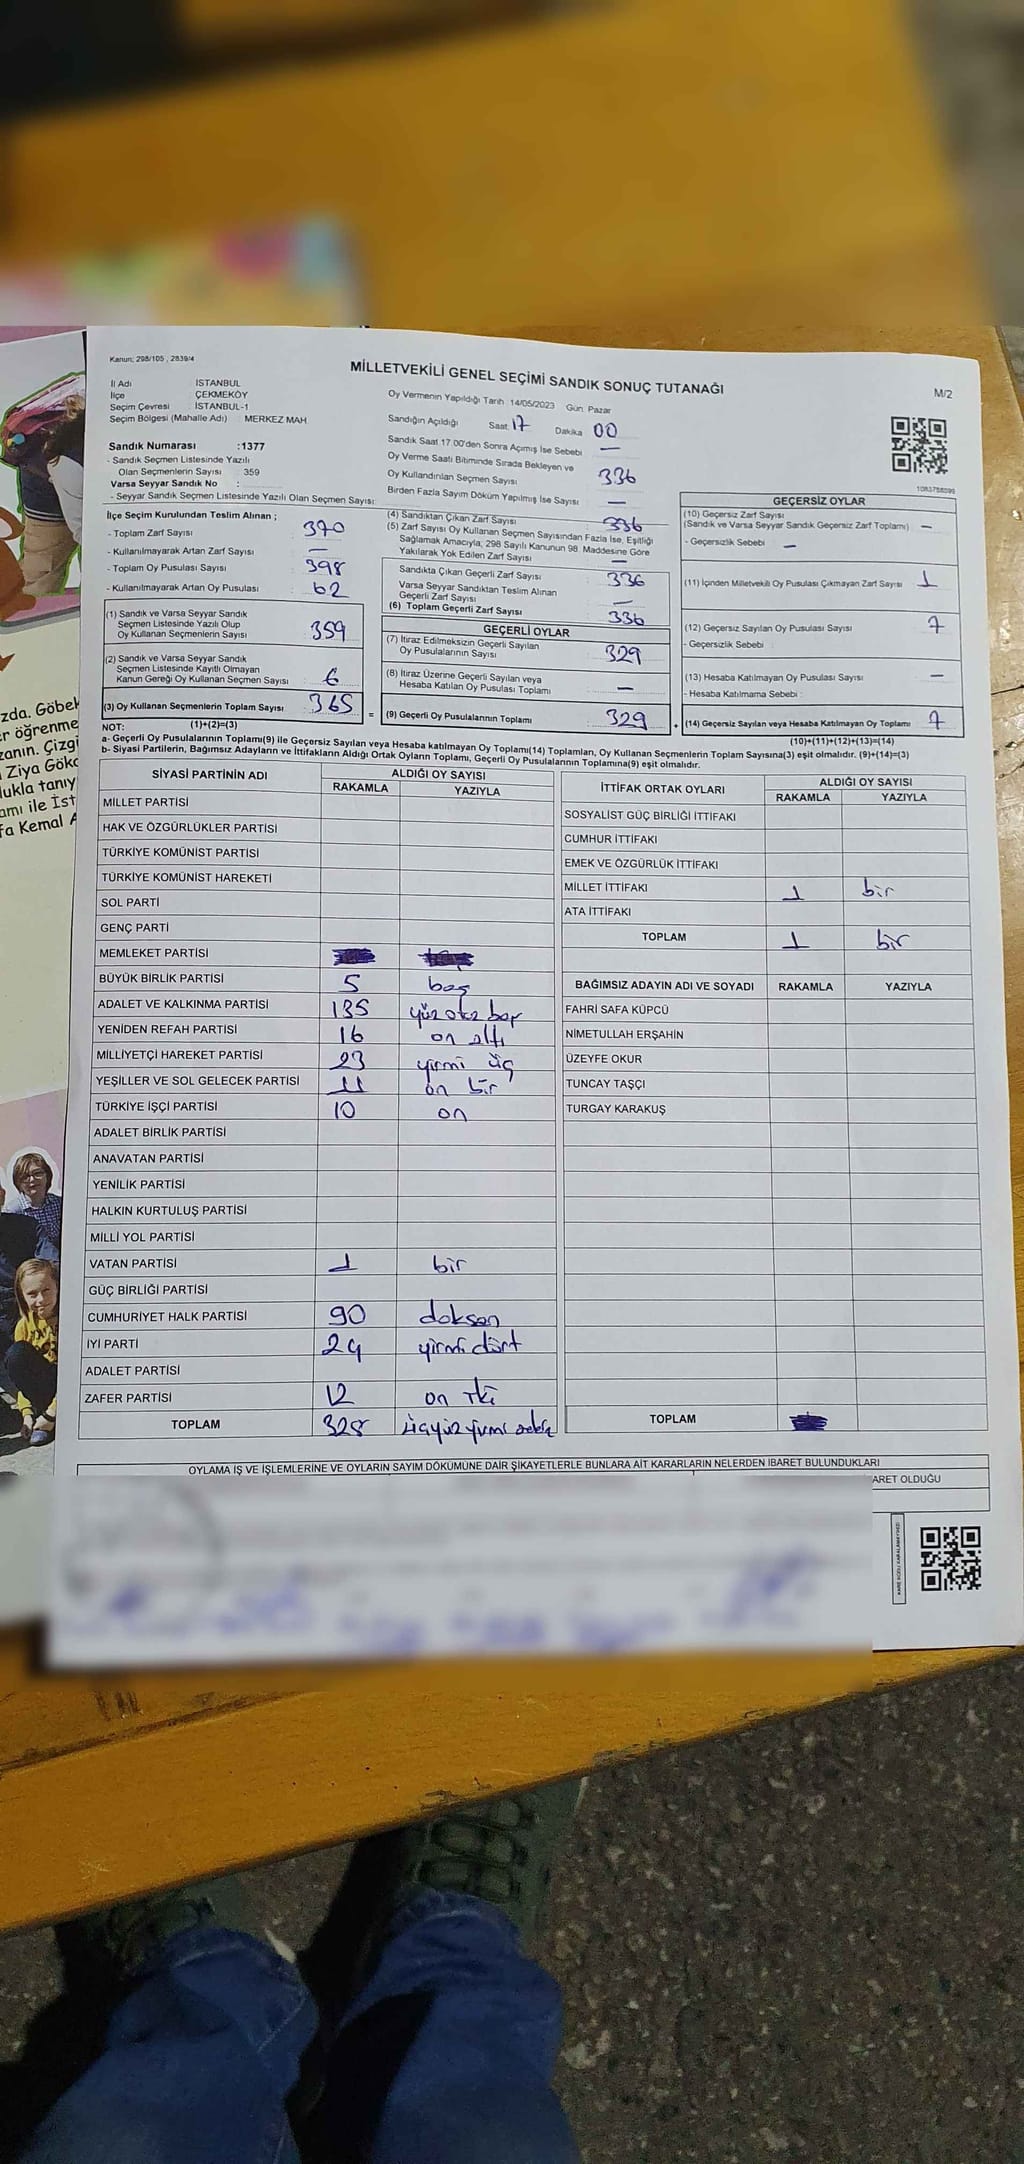 Kanun: 298/105 , 2839/4
MİLLETVEKİLİ GENEL SEÇİMİ SANDIK SONUÇ TUTANAĞI
M/2
İl Adı İSTANBUL
İlçe ÇEKMEKÖY
Seçim Çevresi : İSTANBUL-1
Seçim Bölgesi (Mahalle Adı) : MERKEZ MAH
Sandık Numarası :1377
- Sandık Seçmen Listesinde Yazılı
Olan Seçmenlerin Sayısı 359
Varsa Seyyar Sandık No :
- Seyyar Sandık Seçmen Listesinde Yazılı Olan Seçmen Sayısı:
Oy Vermenin Yapıldığı Tarih :14/05/2023 Gün: Pazar
Sandığın Açıldığı Saat 17 Dakika 00
Sandık Saat 17.00'den Sonra Açımış İse Sebebi —
Oy Verme Saati Bitiminde Sırada Bekleyen ve
Oy Kullandırılan Seçmen Sayısı 336
Birden Fazla Sayım Döküm Yapılmış İse Sayısı —
1083758099
İlçe Seçim Kurulundan Teslim Alınan ;
- Toplam Zarf Sayısı 370
- Kullanılmayarak Artan Zarf Sayısı —
- Toplam Oy Pusulası Sayısı 398
- Kullanılmayarak Artan Oy Pusulası 62
(1) Sandık ve Varsa Seyyar Sandık
Seçmen Listesinde Yazılı Olup
Oy Kullanan Seçmenlerin Sayısı 359
(2) Sandık ve Varsa Seyyar Sandık
Seçmen Listesinde Kayıtlı Olmayan
Kanun Gereği Oy Kullanan Seçmen Sayısı 6
(3) Oy Kullanan Seçmenlerin Toplam Sayısı 365
(1)+(2)=(3)
(4) Sandıktan Çıkan Zarf Sayısı 336
(5) Zarf Sayısı Oy Kullanan Seçmen Sayısından Fazla İse, Eşitliği
Sağlamak Amacıyla, 298 Sayılı Kanunun 98. Maddesine Göre
Yakılarak Yok Edilen Zarf Sayısı —
Sandıkta Çıkan Geçerli Zarf Sayısı 336
Varsa Seyyar Sandıktan Teslim Alınan
Geçerli Zarf Sayısı —
(6) Toplam Geçerli Zarf Sayısı 336
GEÇERLİ OYLAR
(7) İtiraz Edilmeksizin Geçerli Sayılan
Oy Pusulalarının Sayısı 329
(8) İtiraz Üzerine Geçerli Sayılan veya
Hesaba Katılan Oy Pusulası Toplamı —
= (9) Geçerli Oy Pusulalarının Toplamı 329
GEÇERSİZ OYLAR
(10) Geçersiz Zarf Sayısı
(Sandık ve Varsa Seyyar Sandık Geçersiz Zarf Toplamı) —
- Geçersizlik Sebebi —
(11) İçinden Milletvekili Oy Pusulası Çıkmayan Zarf Sayısı 1
(12) Geçersiz Sayılan Oy Pusulası Sayısı 7
- Geçersizlik Sebebi
(13) Hesaba Katılmayan Oy Pusulası Sayısı —
- Hesaba Katılmama Sebebi :
+ (14) Geçersiz Sayılan veya Hesaba Katılmayan Oy Toplamı 7
(10)+(11)+(12)+(13)=(14)
NOT:
a- Geçerli Oy Pusulalarının Toplamı(9) ile Geçersiz Sayılan veya Hesaba katılmayan Oy Toplamı(14) Toplamları, Oy Kullanan Seçmenlerin Toplam Sayısına(3) eşit olmalıdır. (9)+(14)=(3)
b- Siyasi Partilerin, Bağımsız Adayların ve İttifakların Aldığı Ortak Oyların Toplamı, Geçerli Oy Pusulalarının Toplamına(9) eşit olmalıdır.
SİYASİ PARTİNİN ADI ALDIĞI OY SAYISI
RAKAMLA YAZIYLA
MİLLET PARTİSİ
HAK VE ÖZGÜRLÜKLER PARTİSİ
TÜRKİYE KOMÜNİST PARTİSİ
TÜRKİYE KOMÜNİST HAREKETİ
SOL PARTİ
GENÇ PARTİ
MEMLEKET PARTİSİ
BÜYÜK BİRLİK PARTİSİ 5 beş
ADALET VE KALKINMA PARTİSİ 135 yüz otuz beş
YENİDEN REFAH PARTİSİ 16 on altı
MİLLİYETÇİ HAREKET PARTİSİ 23 yirmi üç
YEŞİLLER VE SOL GELECEK PARTİSİ 11 on bir
TÜRKİYE İŞÇİ PARTİSİ 10 on
ADALET BİRLİK PARTİSİ
ANAVATAN PARTİSİ
YENİLİK PARTİSİ
HALKIN KURTULUŞ PARTİSİ
MİLLİ YOL PARTİSİ
VATAN PARTİSİ 1 bir
GÜÇ BİRLİĞİ PARTİSİ
CUMHURİYET HALK PARTİSİ 90 doksan
İYİ PARTİ 24 yirmi dört
ADALET PARTİSİ
ZAFER PARTİSİ 12 on iki
TOPLAM 328 üçyüz yirmi sekiz
İTTİFAK ORTAK OYLARI ALDIĞI OY SAYISI
RAKAMLA YAZIYLA
SOSYALİST GÜÇ BİRLİĞİ İTTİFAKI
CUMHUR İTTİFAKI
EMEK VE ÖZGÜRLÜK İTTİFAKI
MİLLET İTTİFAKI 1 bir
ATA İTTİFAKI
TOPLAM 1 bir
BAĞIMSIZ ADAYIN ADI VE SOYADI RAKAMLA YAZIYLA
FAHRİ SAFA KÜPCÜ
NİMETULLAH ERŞAHİN
ÜZEYFE OKUR
TUNCAY TAŞÇI
TURGAY KARAKUŞ
TOPLAM
OYLAMA İŞ VE İŞLEMLERİNE VE OYLARIN SAYIM DÖKÜMÜNE DAİR ŞİKAYETLERLE BUNLARA AİT KARARLARIN NELERDEN İBARET BULUNDUKLARI
ARET OLDUĞU
zda. Göbek
r öğrenme
zanın. Çizgi
Ziya Göka
lukla tanıy
amı ile İst
fa Kemal A